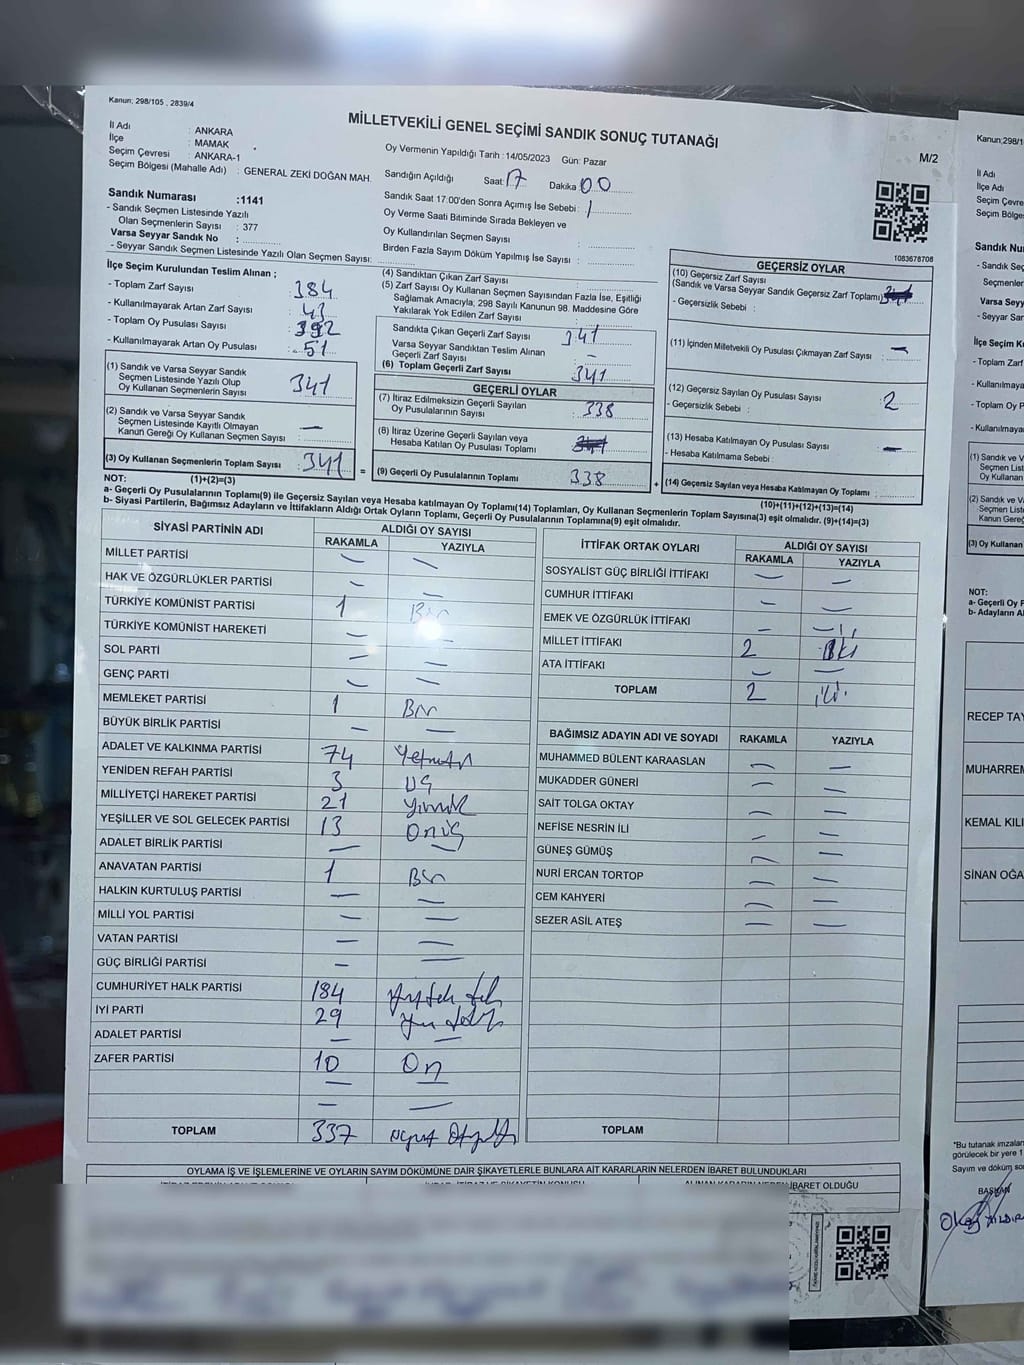 Kanun; 298/105 , 2839/4
MİLLETVEKİLİ GENEL SEÇİMİ SANDIK SONUÇ TUTANAĞI
M/2
İl Adı : ANKARA
İlçe : MAMAK
Seçim Çevresi : ANKARA-1
Seçim Bölgesi (Mahalle Adı) : GENERAL ZEKİ DOĞAN MAH.
Oy Vermenin Yapıldığı Tarih : 14/05/2023 Gün: Pazar
Sandığın Açıldığı Saat: 17 Dakika 00
Sandık Saat 17:00'den Sonra Açımış İse Sebebi :
Oy Verme Saati Bitiminde Sırada Bekleyen ve
Oy Kullandırılan Seçmen Sayısı :
Birden Fazla Sayım Döküm Yapılmış İse Sayısı :
Sandık Numarası :1141
- Sandık Seçmen Listesinde Yazılı
Olan Seçmenlerin Sayısı : 377
Varsa Seyyar Sandık No :
- Seyyar Sandık Seçmen Listesinde Yazılı Olan Seçmen Sayısı:
1083678708
İlçe Seçim Kurulundan Teslim Alınan ;
- Toplam Zarf Sayısı : 384
- Kullanılmayarak Artan Zarf Sayısı : 43
- Toplam Oy Pusulası Sayısı : 392
- Kullanılmayarak Artan Oy Pusulası : 51
(1) Sandık ve Varsa Seyyar Sandık
Seçmen Listesinde Yazılı Olup
Oy Kullanan Seçmenlerin Sayısı 341
(2) Sandık ve Varsa Seyyar Sandık
Seçmen Listesinde Kayıtlı Olmayan
Kanun Gereği Oy Kullanan Seçmen Sayısı : —
(3) Oy Kullanan Seçmenlerin Toplam Sayısı : 341
(1)+(2)=(3)
(4) Sandıktan Çıkan Zarf Sayısı :
(5) Zarf Sayısı Oy Kullanan Seçmen Sayısından Fazla İse, Eşitliği
Sağlamak Amacıyla; 298 Sayılı Kanunun 98. Maddesine Göre
Yakılarak Yok Edilen Zarf Sayısı :
Sandıkta Çıkan Geçerli Zarf Sayısı : 341
Varsa Seyyar Sandıktan Teslim Alınan
Geçerli Zarf Sayısı : -
(6) Toplam Geçerli Zarf Sayısı : 341
GEÇERLİ OYLAR
(7) İtiraz Edilmeksizin Geçerli Sayılan
Oy Pusulalarının Sayısı : 338
(8) İtiraz Üzerine Geçerli Sayılan veya
Hesaba Katılan Oy Pusulası Toplamı :
= (9) Geçerli Oy Pusulalarının Toplamı : 338 +
GEÇERSİZ OYLAR
(10) Geçersiz Zarf Sayısı
(Sandık ve Varsa Seyyar Sandık Geçersiz Zarf Toplamı)
- Geçersizlik Sebebi :
(11) İçinden Milletvekili Oy Pusulası Çıkmayan Zarf Sayısı : —
(12) Geçersiz Sayılan Oy Pusulası Sayısı : 2
- Geçersizlik Sebebi :
(13) Hesaba Katılmayan Oy Pusulası Sayısı : —
- Hesaba Katılmama Sebebi :
(14) Geçersiz Sayılan veya Hesaba Katılmayan Oy Toplamı :
(10)+(11)+(12)+(13)=(14)
NOT:
a- Geçerli Oy Pusulalarının Toplamı(9) ile Geçersiz Sayılan veya Hesaba katılmayan Oy Toplamı(14) Toplamları, Oy Kullanan Seçmenlerin Toplam Sayısına(3) eşit olmalıdır. (9)+(14)=(3)
b- Siyasi Partilerin, Bağımsız Adayların ve İttifakların Aldığı Ortak Oyların Toplamı, Geçerli Oy Pusulalarının Toplamına(9) eşit olmalıdır.
SİYASİ PARTİNİN ADI ALDIĞI OY SAYISI
RAKAMLA YAZIYLA
MİLLET PARTİSİ — —
HAK VE ÖZGÜRLÜKLER PARTİSİ — —
TÜRKİYE KOMÜNİST PARTİSİ 1 Bir
TÜRKİYE KOMÜNİST HAREKETİ — —
SOL PARTİ — —
GENÇ PARTİ — —
MEMLEKET PARTİSİ 1 Bir
BÜYÜK BİRLİK PARTİSİ — —
ADALET VE KALKINMA PARTİSİ 74
YENİDEN REFAH PARTİSİ 3 üç
MİLLİYETÇİ HAREKET PARTİSİ 21
YEŞİLLER VE SOL GELECEK PARTİSİ 13 onüç
ADALET BİRLİK PARTİSİ — —
ANAVATAN PARTİSİ 1 Bir
HALKIN KURTULUŞ PARTİSİ — —
MİLLİ YOL PARTİSİ — —
VATAN PARTİSİ — —
GÜÇ BİRLİĞİ PARTİSİ — —
CUMHURİYET HALK PARTİSİ 184
İYİ PARTİ 29
ADALET PARTİSİ — —
ZAFER PARTİSİ 10 On
— —
— —
TOPLAM 337
İTTİFAK ORTAK OYLARI ALDIĞI OY SAYISI
RAKAMLA YAZIYLA
SOSYALİST GÜÇ BİRLİĞİ İTTİFAKI — —
CUMHUR İTTİFAKI — —
EMEK VE ÖZGÜRLÜK İTTİFAKI — —
MİLLET İTTİFAKI 2 iki
ATA İTTİFAKI — —
TOPLAM 2 iki
BAĞIMSIZ ADAYIN ADI VE SOYADI RAKAMLA YAZIYLA
MUHAMMED BÜLENT KARAASLAN — —
MUKADDER GÜNERİ — —
SAİT TOLGA OKTAY — —
NEFİSE NESRİN İLİ — —
GÜNEŞ GÜMÜŞ — —
NURİ ERCAN TORTOP — —
CEM KAHYERİ — —
SEZER ASİL ATEŞ — —
TOPLAM
OYLAMA İŞ VE İŞLEMLERİNE VE OYLARIN SAYIM DÖKÜMÜNE DAİR ŞİKAYETLERLE BUNLARA AİT KARARLARIN NELERDEN İBARET BULUNDUKLARI
İBARET OLDUĞU
Kanun;298/1
İl Adı
İlçe Adı
Seçim Çevre
Seçim Bölges
Sandık Nu
- Sandık Seç
Seçmenler
Varsa Seyy
- Seyyar San
İlçe Seçim K
- Toplam Zarf
- Kullanılmaya
- Toplam Oy P
- Kullanılmaya
(1) Sandık ve V
(2) Sandık ve Va
(3) Oy Kullanan
NOT:
a- Geçerli Oy P
b- Adayların Al
RECEP TAY
MUHARREM
KEMAL KILI
SİNAN OĞA
*Bu tutanak imzalan
görülecek bir yere 1
Sayım ve döküm so
BAŞKAN